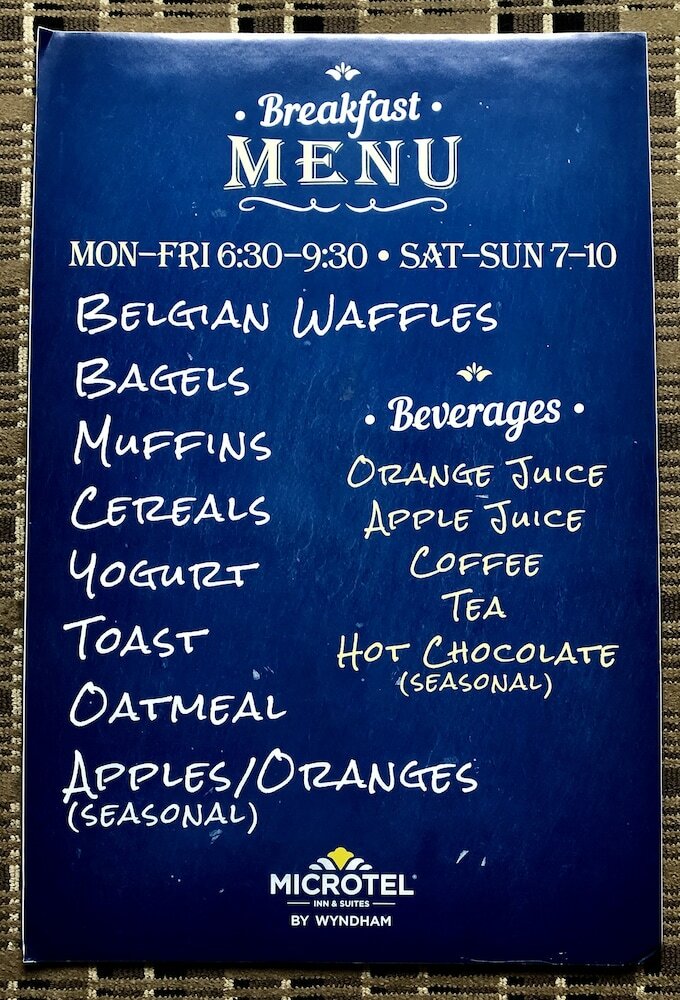 • Breakfast •
MENU
MON–FRI 6:30–9:30 • SAT–SUN 7–10
BELGIAN WAFFLES
BAGELS
MUFFINS
CEREALS
YOGURT
TOAST
OATMEAL
APPLES/ORANGES
(SEASONAL)
• Beverages •
ORANGE JUICE
APPLE JUICE
COFFEE
TEA
HOT CHOCOLATE
(SEASONAL)
MICROTEL®
INN & SUITES
BY WYNDHAM